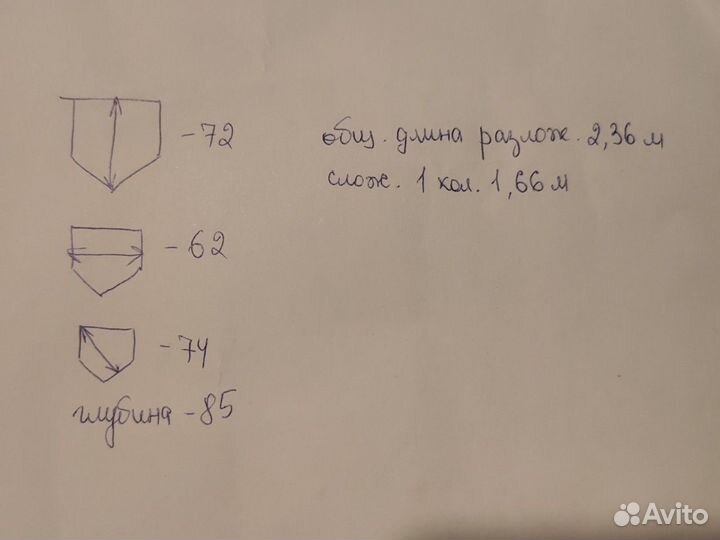 -72
общ. длина разлож. 2,36 м
слож. 1 кол. 1,66 м
-62
-74
глубина -85
Avito